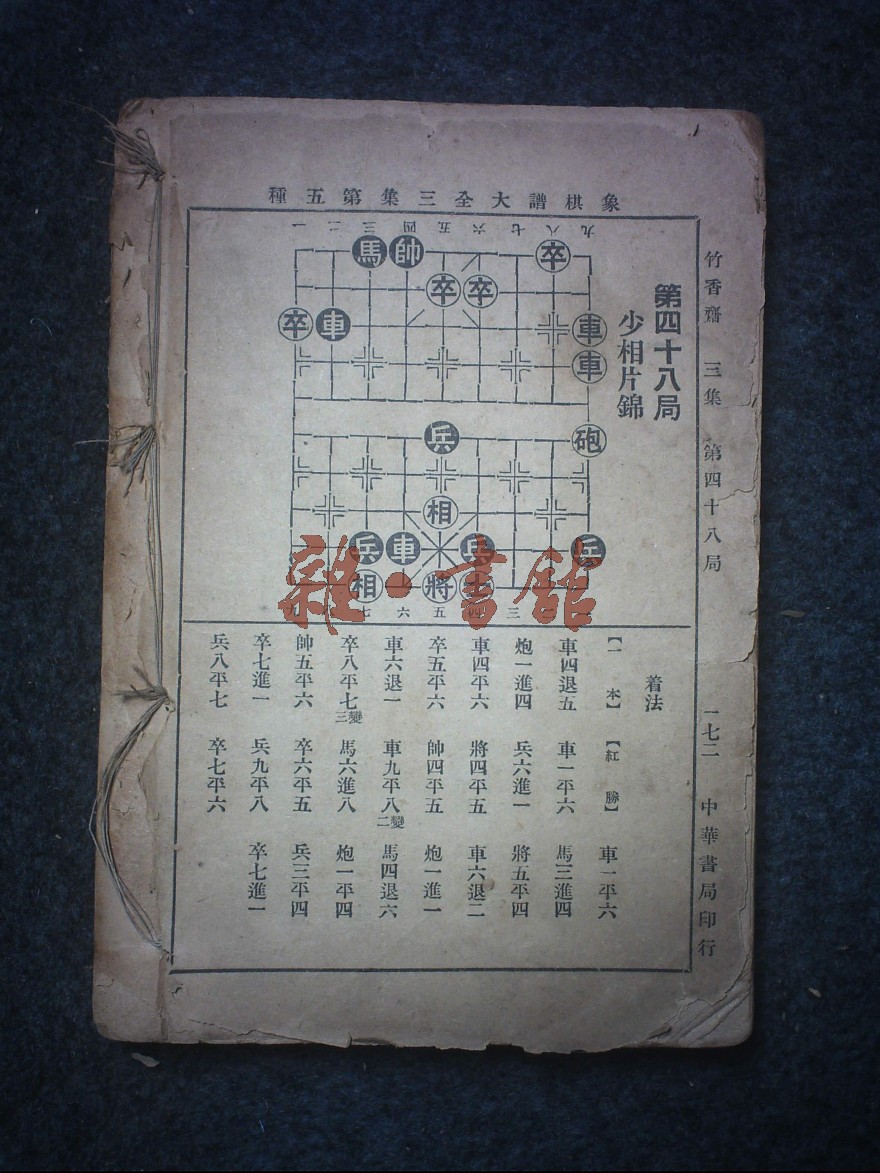 象棋譜大全三集第五種
竹香齋 三集 第四十八局 一七二 中華書局印行
第四十八局
少相片錦
一 二 三 四 五 六 七 八 九
馬 帥 卒
卒 卒
卒 車 車
車
兵 砲
相
兵 車 兵 兵
相 將 士
七 六 五 四 三
着法
【一本】 【紅勝】 車一平六
車四退五 車一平六 馬三進四
炮一進四 兵六進一 將五平四
車四平六 將四平五 車六退二
卒五平六 帥四平五 炮一進一
車六退一 車九平八變二 馬四退六
卒八平七變三 馬六進八 炮一平四
帥五平六 卒六平五 兵三平四
卒七進一 兵九平八 卒七進一
兵八平七 卒七平六
雜·書館